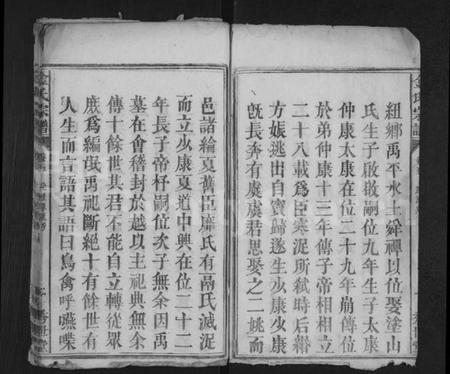 紐鄉禹平水土舜禪以位娶塗山
氏生子啟啟嗣位九年生子太康
仲康太康在位二十九年崩傳位
於弟仲康十三年傳子帝相相立
二十八載爲臣寒浞所弒時后緡
方娠逃出自竇歸遂生少康少康
旣長奔有虞虞君思娶之二姚而
邑諸綸夏舊臣靡氏有鬲氏滅浞
而立少康夏道中興在位二十二
年長子帝杼嗣位次子無余因禹
墓在會稽封於越以主祀典無余
傳十余世其君不能自立轉從眾
庶爲編氓禹祀斷絕十有餘世有
人生而言語其語曰鳥禽呼嚥喋
金氏宗譜